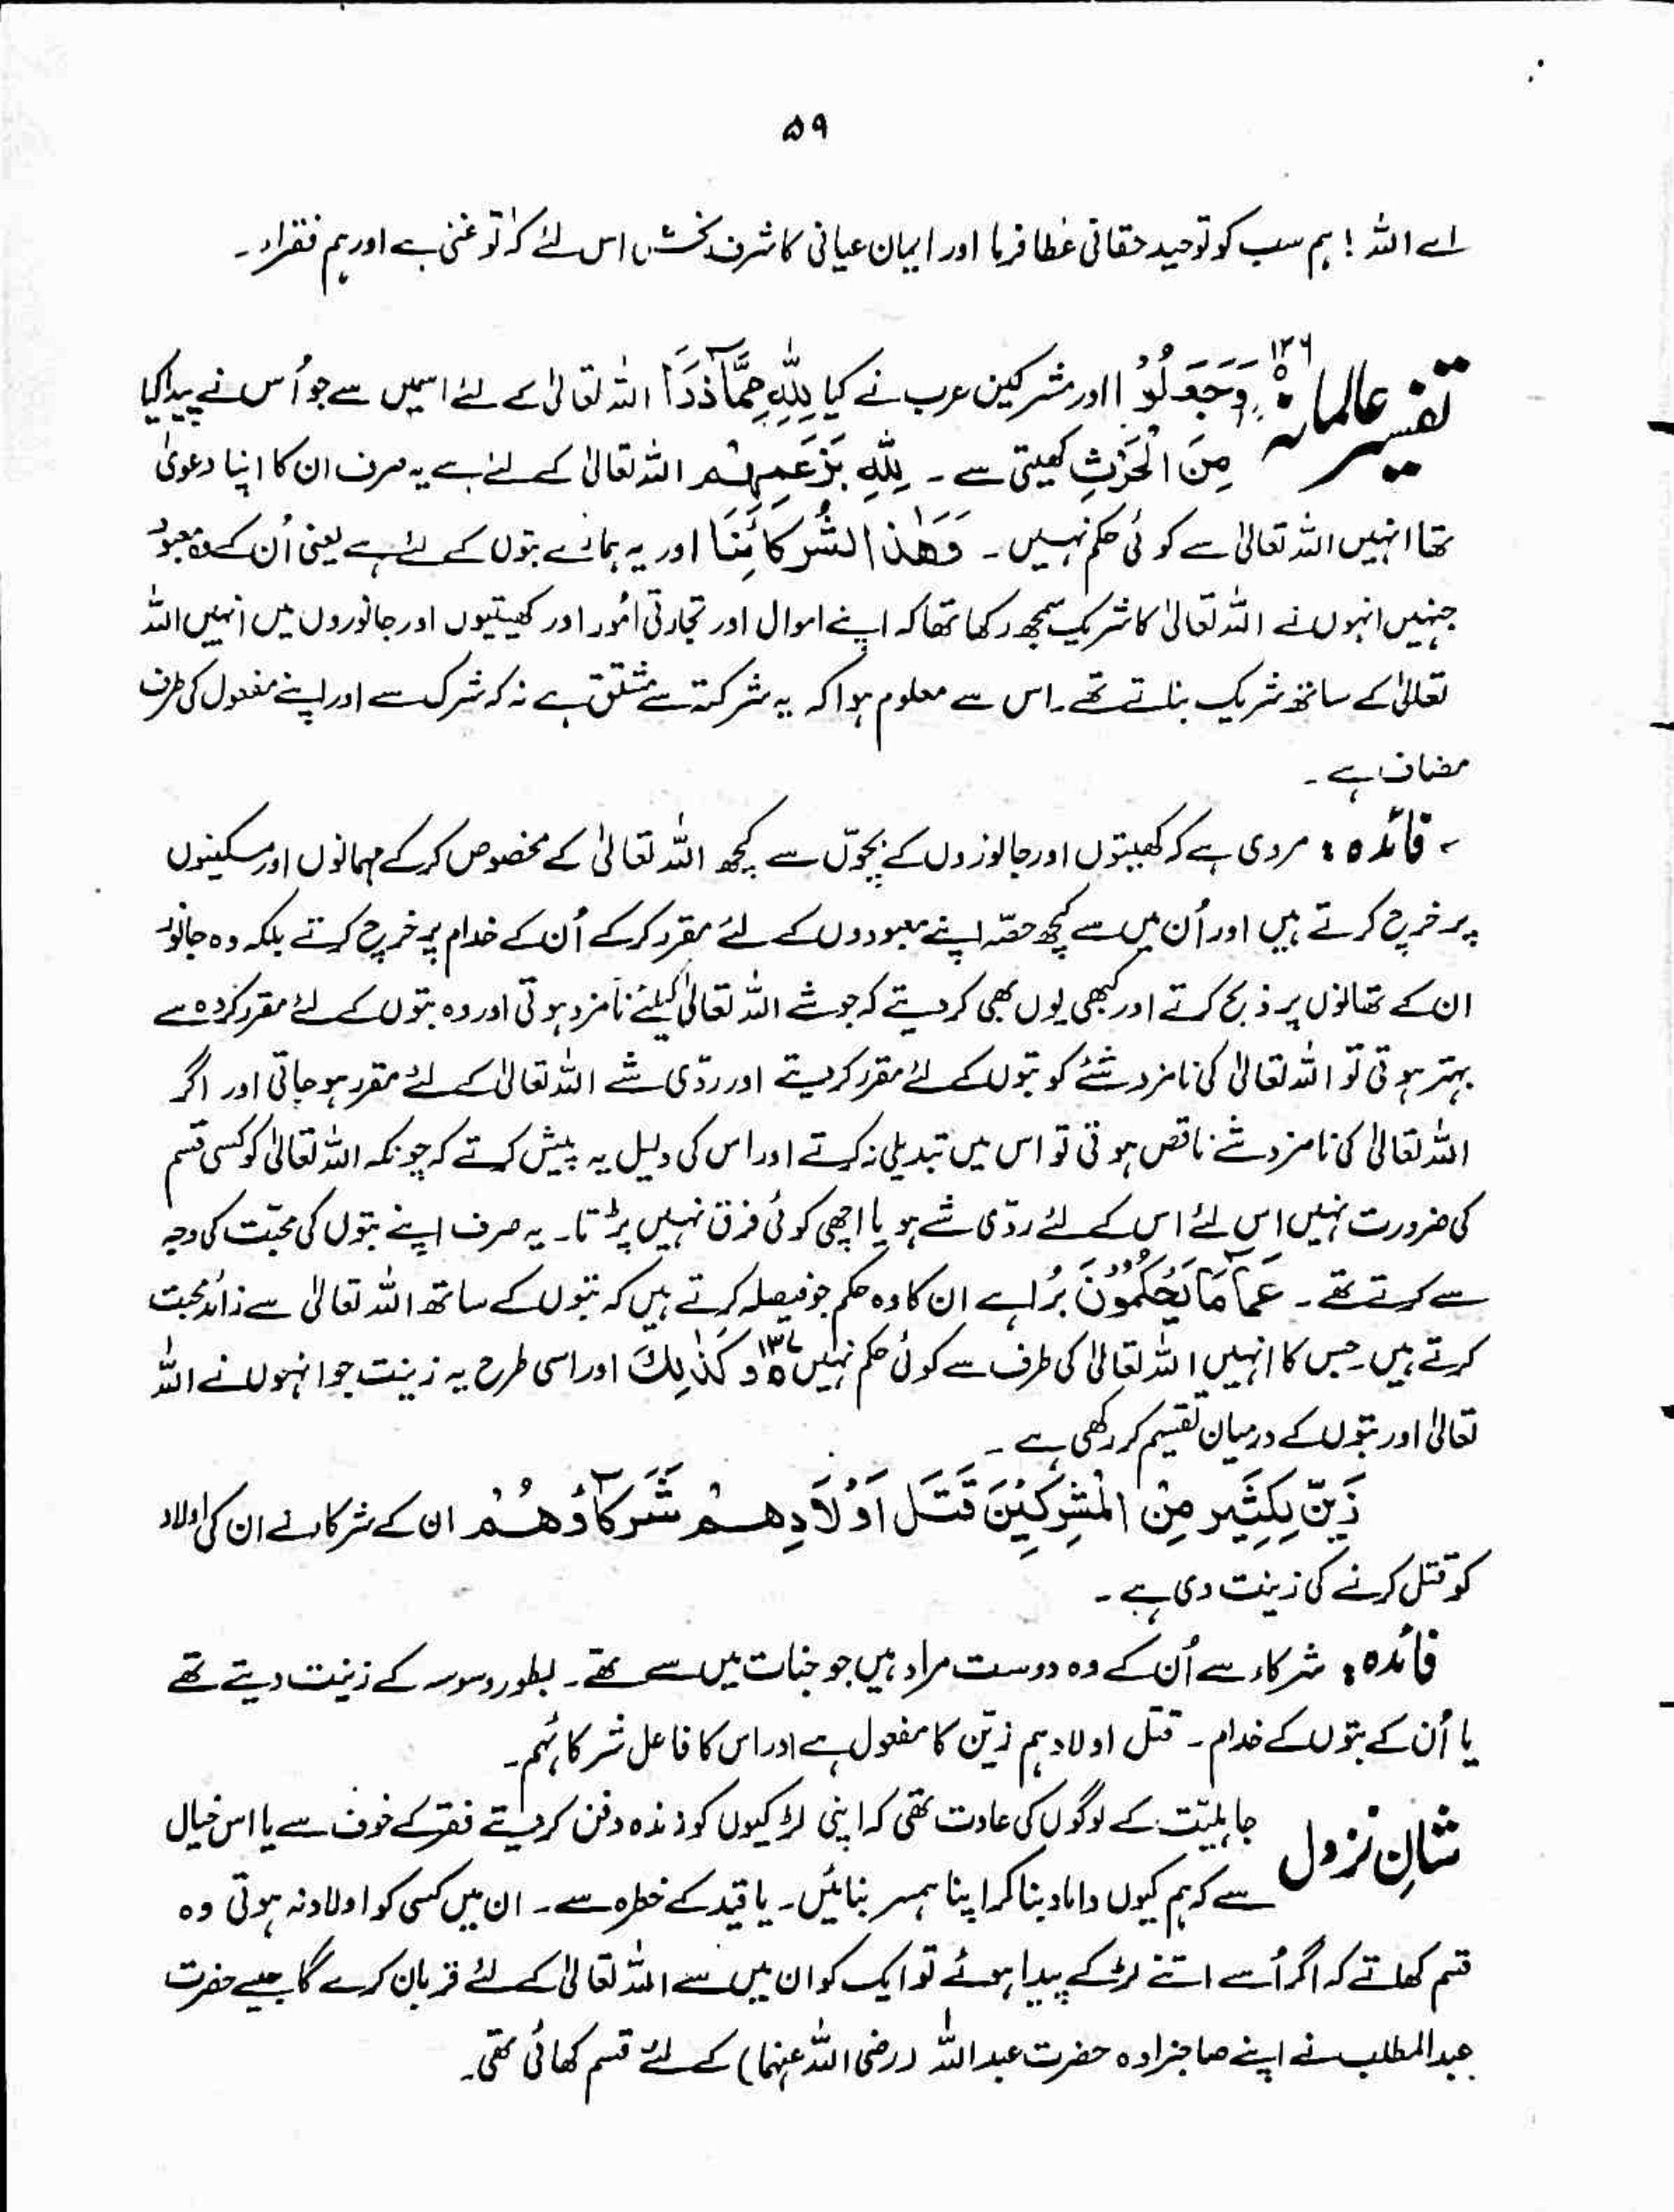 ۵۹
اے اللہ ! ہم سب کو توحید حقانی عطا فرما اور ایمان عیانی کا شرف بخش اس لئے کہ تو غنی ہے اور ہم فقراء۔
تفسیر عالمانہ ۱۳۶ وَجَعَلُوْا اور مشرکین عرب نے کیا لِلّٰہِ مِمَّا ذَرَاَ اللہ تعالیٰ کے لئے اسمیں سے جو اُس نے پیدا کیا
مِنَ الْحَرْثِ کھیتی سے ۔ لِلّٰہِ بِزَعْمِہِمْ اللہ تعالیٰ کے لئے ہے یہ صرف ان کا اپنا دعویٰ
تھا انہیں اللہ تعالیٰ سے کوئی حکم نہیں ۔ وَھٰذَا لِشُرَکَائِنَا اور یہ ہمارے بتوں کے لئے ہے یعنی اُن کے وہ معبود
جنہیں انہوں نے اللہ تعالیٰ کا شریک سمجھ رکھا تھا کہ اپنے اموال اور تجارتی اُمور اور کھیتیوں اور جانوروں میں انہیں اللہ
تعالیٰ کے ساتھ شریک بناتے تھے ۔ اس سے معلوم ہوا کہ یہ شرکتہ سے مشتق ہے نہ کہ شرک سے اور اپنے مفعول کی طرف
مضاف ہے ۔
فائدہ : مروی ہے کہ کھیتوں اور جانوروں کے بچوّں سے کچھ اللہ تعالیٰ کے مخصوص کرکے مہمانوں اور مسکینوں
پر خرچ کرتے ہیں اور اُن میں سے کچھ حصّہ اپنے معبودوں کے لئے مقرر کرکے اُن کے خدام پر خرچ کرتے بلکہ وہ جانور
ان کے تھانوں پر ذبح کرتے اور کبھی یوں بھی کر دیتے کہ جو شے اللہ تعالیٰ کیلئے نامزد ہوتی اور وہ بتوں کے لئے مقرر کردہ سے
بہتر ہوتی تو اللہ تعالیٰ کی نامزد شئے کو بتوں کے لئے مقرر کر دیتے اور ردّی شے اللہ تعالیٰ کے لئے مقرر ہو جاتی اور اگر
اللہ تعالیٰ کی نامزد شے ناقص ہوتی تو اس میں تبدیلی نہ کرتے اور اس کی دلیل یہ پیش کرتے کہ چونکہ اللہ تعالیٰ کو کسی قسم
کی ضرورت نہیں اس لئے اس کے لئے ردّی شے ہو یا اچھی کوئی فرق نہیں پڑتا۔ یہ صرف اپنے بتوں کی محبّت کی وجہ
سے کرتے تھے ۔ مَا یَحْکُمُوْنَ بُرا ہے ان کا وہ حکم جو فیصلہ کرتے ہیں کہ بتوں کے ساتھ اللہ تعالیٰ سے زائد محبت
کرتے ہیں جس کا انہیں اللہ تعالیٰ کی طرف سے کوئی حکم نہیں ۱۳۷ وَکَذٰلِکَ اور اسی طرح یہ زینت جو انہوں نے اللہ
تعالیٰ اور بتوں کے درمیان تقسیم کر رکھی ہے ۔
زَیَّنَ لِکَثِیْرٍ مِنَ الْمُشْرِکِیْنَ قَتْلَ اَوْلَادِھِمْ شُرَکَآؤُھُمْ ان کے شرکاء نے ان کی اولاد
کو قتل کرنے کی زینت دی ہے ۔
فائدہ : شرکاء سے اُن کے وہ دوست مراد ہیں جو جنات میں سے تھے ۔ بطور وسوسہ کے زینت دیتے تھے
یا اُن کے بتوں کے خدام ۔ قتل اولادہم زیّن کا مفعول ہے اور اس کا فاعل شرکائہم ۔
شانِ نزول جاہلیّت کے لوگوں کی عادت تھی کہ اپنی لڑکیوں کو زندہ دفن کر دیتے فقر کے خوف سے یا اس خیال
سے کہ ہم کیوں داماد بنا کر اپنا ہمسر بنائیں۔ یا قید کے خطرہ سے ۔ ان میں کسی کو اولاد نہ ہوتی وہ
قسم کھاتے کہ اگر اُسے اتنے لڑکے پیدا ہوئے تو ایک کو ان میں سے اللہ تعالیٰ کے لئے قربان کرے گا جیسے حضرت
عبدالمطلب نے اپنے صاحبزادہ حضرت عبد اللہ (رضی اللہ عنہما) کے لئے قسم کھائی تھی۔